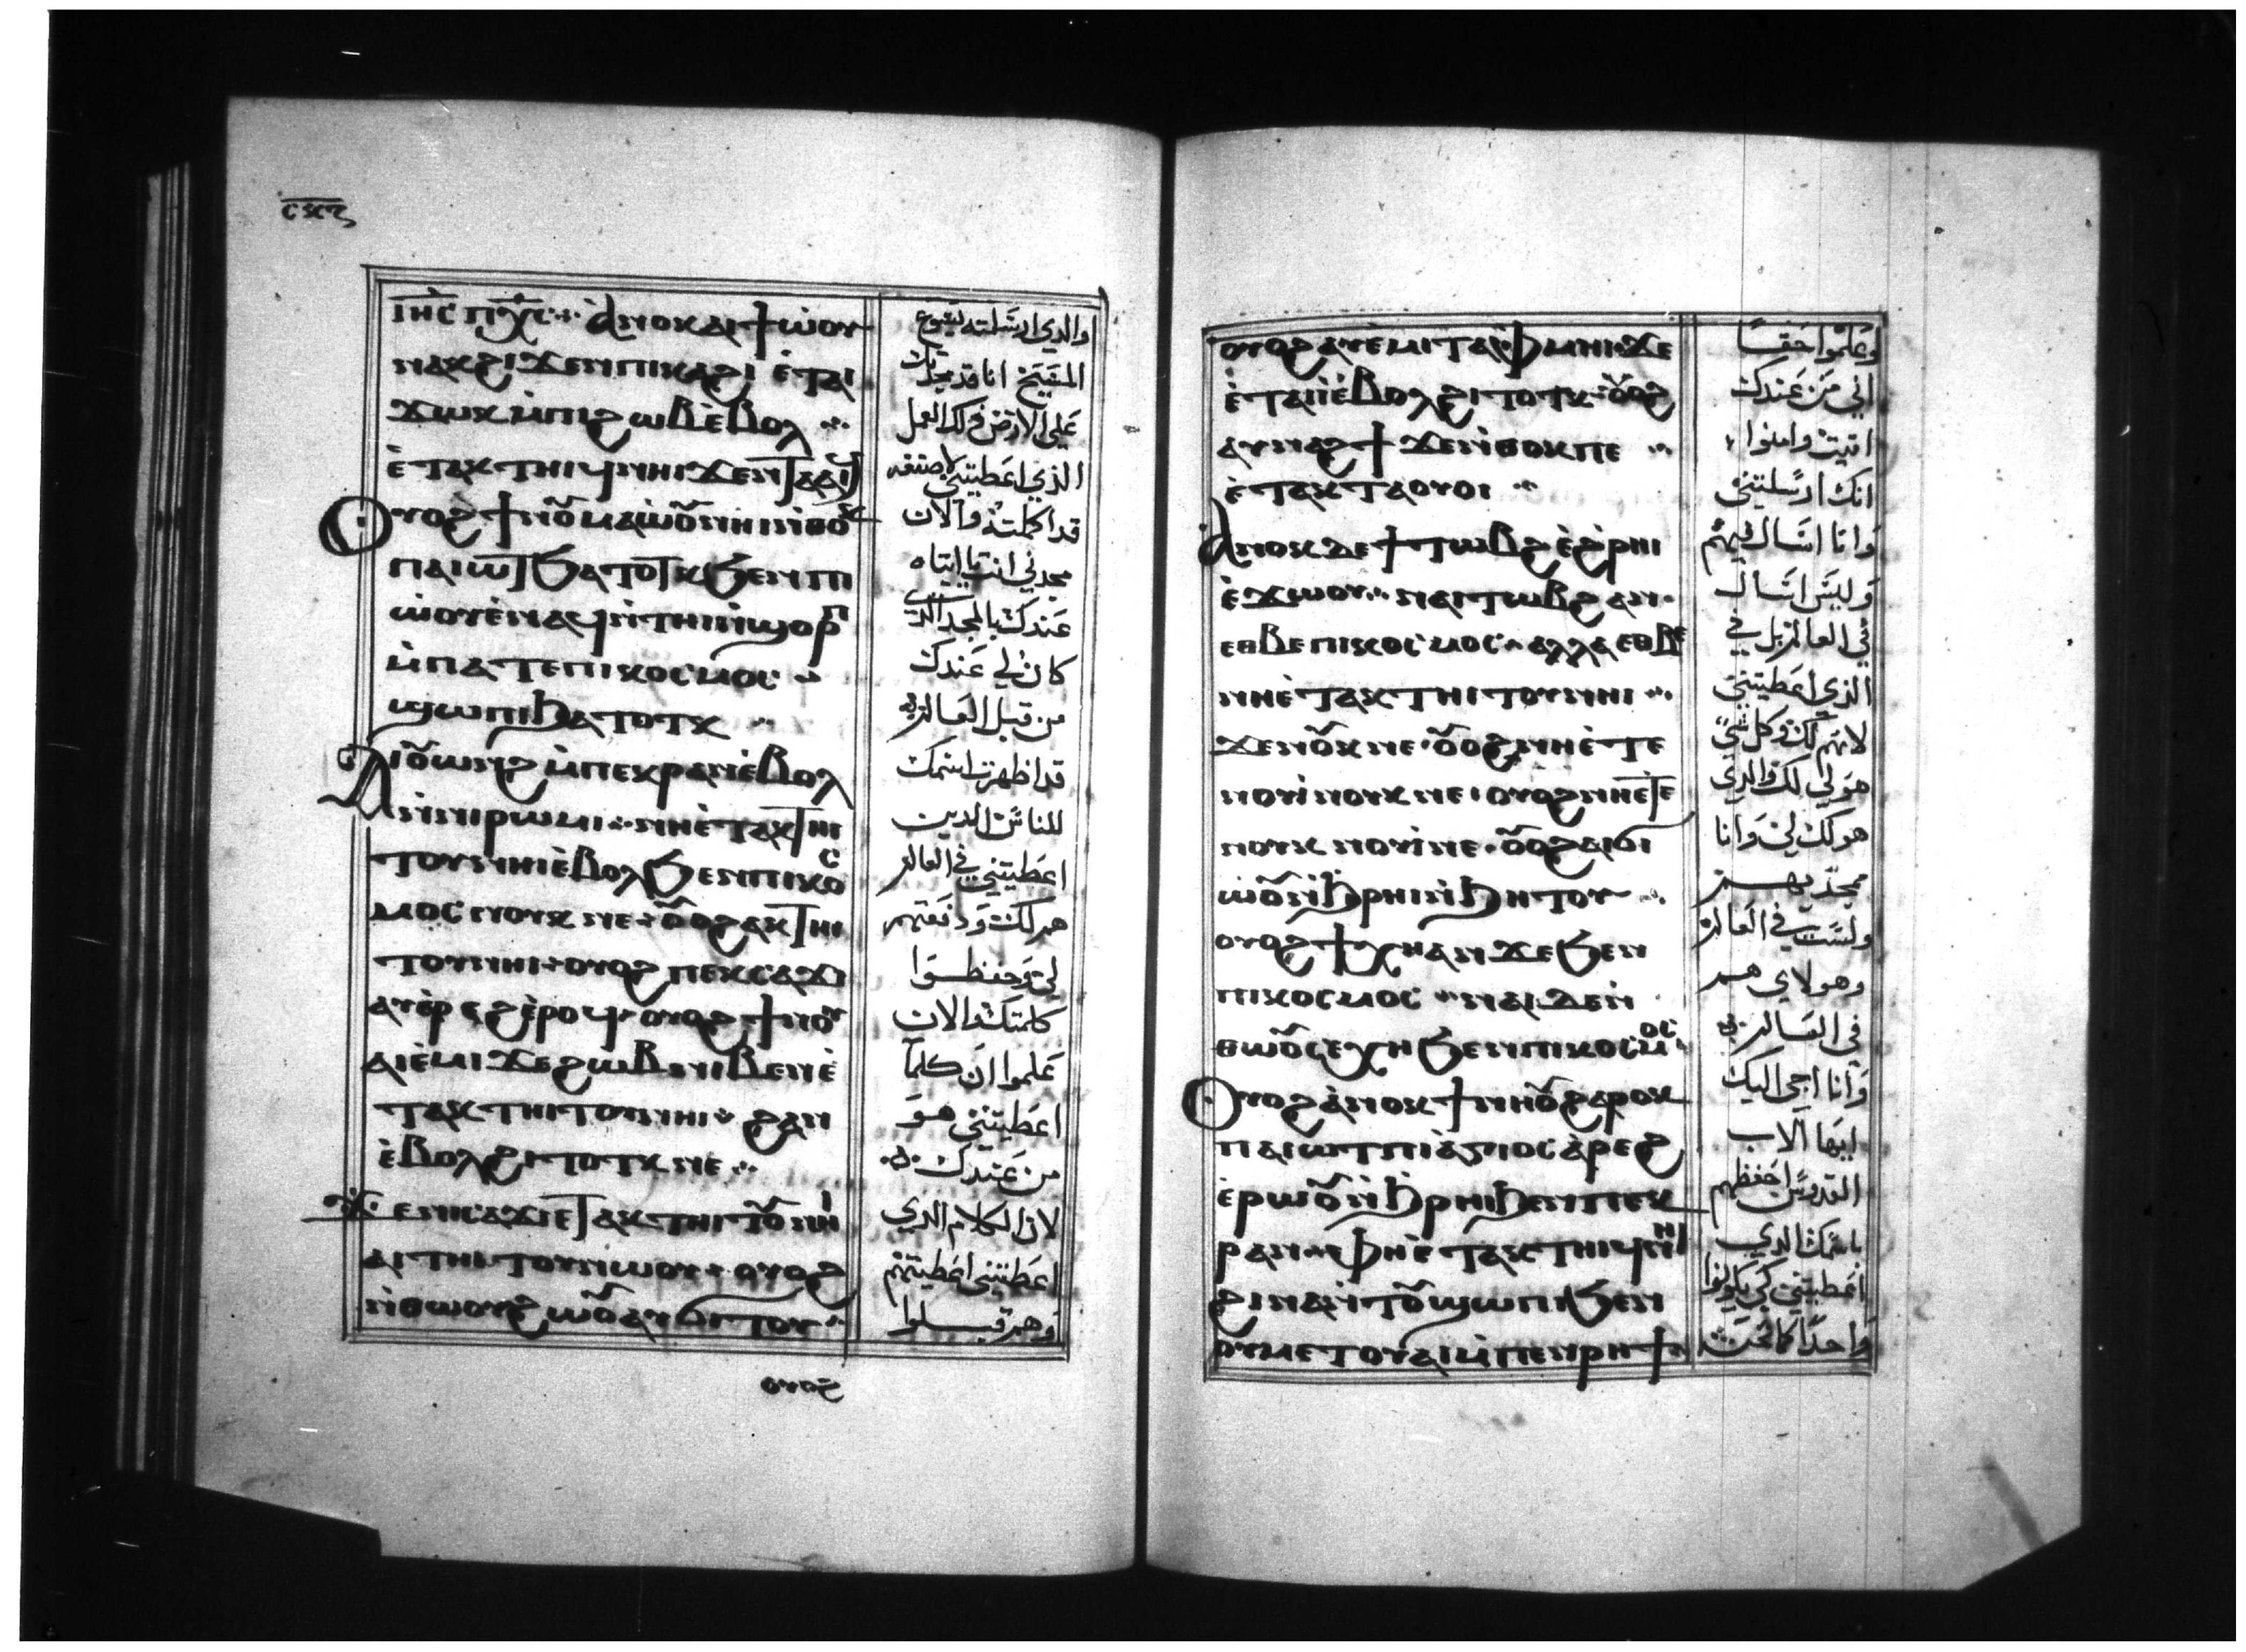 ⲓⲏ̅ⲥ̅ ⲡⲭ̅ⲥ̅ ⁘ ⲁ̀ⲛⲟⲕ ⲁⲓϯⲱ̀ⲟⲩ
ⲛⲁⲕ ϩⲓϫⲉⲛ ⲡⲓⲕⲁϩⲓ ⲉ̀ⲧⲁⲓ
ϫⲱⲕ ⲙ̀ⲡⲓϩⲱⲃ ⲉ̀ⲃⲟⲗ ⁘
ⲉ̀ⲧⲁⲕⲧⲏⲓϥ ⲛⲏⲓ ϫⲉⲛⲧⲁⲁⲓϥ
ⲟⲩⲟϩ ϯⲛⲟⲩ ⲙⲁⲱ̀ⲟⲩ ⲛⲏⲓ ⲛ̀ⲑⲟⲕ
ⲡⲁⲓⲱⲧ ϧⲁⲧⲟⲧⲕ ϧⲉⲛ ⲡⲓ
ⲱ̀ⲟⲩ ⲉ̀ⲛⲁϥⲛ̀ⲧⲏⲓ ⲛ̀ϣⲟⲣⲡ
ⲙ̀ⲡⲁⲧⲉ ⲡⲓⲕⲟⲥⲙⲟⲥ ⁘
ϣⲱⲡⲓ ϧⲁⲧⲟⲧⲕ ⁘
ⲁⲓⲟⲩⲱⲛϩ ⲙ̀ⲡⲉⲕⲣⲁⲛ ⲉ̀ⲃⲟⲗ
ⲛ̀ⲛⲓⲣⲱⲙⲓ ⁘ ⲛⲏ ⲉ̀ⲧⲁⲕⲧⲏⲓ
ⲧⲟⲩ ⲛⲏⲓ ⲉ̀ⲃⲟⲗ ϧⲉⲛ ⲡⲓⲕⲟⲥ
ⲙⲟⲥ ⲛⲟⲩⲕ ⲛⲉ ⲟⲩⲟϩ ⲁⲕⲧⲏⲓ
ⲧⲟⲩ ⲛⲏⲓ ⲟⲩⲟϩ ⲡⲉⲕⲥⲁϫⲓ
ⲁⲩⲉ̀ⲣⲉϩ ⲉ̀ⲣⲟϥ ⲟⲩⲟϩ ϯⲛⲟⲩ
ⲁⲓⲉ̀ⲙⲓ ϫⲉ ϩⲱⲃ ⲛⲓⲃⲉⲛ ⲉ̀
ⲧⲁⲕⲧⲏⲓⲧⲟⲩ ⲛⲏⲓ ϩⲁⲛ
ⲉ̀ⲃⲟⲗ ϩⲓⲧⲟⲧⲕ ⲛⲉ ⁘
ϫⲉ ⲛⲓⲥⲁϫⲓ ⲉⲧⲁⲕⲧⲏⲓⲧⲟⲩ ⲛⲏⲓ
ⲁⲓⲧⲏⲓⲧⲟⲩ ⲛⲱⲟⲩ ⲟⲩⲟϩ
ⲛ̀ⲑⲱⲟⲩ ϩⲱⲟⲩ ⲁⲩϭⲓⲧⲟⲩ ⁘
ⲟⲩⲟϩ
والدي ارسلته يسوع
المسيح انا قد مجدتك
على الارض ذلك العمل
الذي اعطيتني لاصنعه
قد اكملته والان
مجدني انت يا ابتاه
عندك بالمجد الذي
كان لي عندك
من قبل العالم
قد اظهرت اسمك
للناس الدين
اعطيتني في العالم
هم لك ودفعتهم
لي وحفظوا
كلمتك والان
علموا ان كلما
اعطيتني هو
من عندك
لان الكلام الدي
اعطيتني اعطيتهم
وهم قبلوا
ⲟⲩⲟϩ ⲁⲩⲉ̀ⲙⲓ ⲧⲁⲫⲙⲏⲓ ϫⲉ
ⲉ̀ⲧⲁⲓⲓ̀ ⲉ̀ⲃⲟⲗ ϩⲓⲧⲟⲧⲕ ⲟⲩⲟϩ
ⲁⲩⲛⲁϩϯ ϫⲉ ⲛ̀ⲑⲟⲕ ⲡⲉ ⁘
ⲉ̀ⲧⲁⲕⲧⲁⲟⲩⲟⲓ ⁘
ⲁⲛⲟⲕ ⲇⲉ ϯⲧⲱⲃϩ ⲉ̀ϩ̀ⲣⲏⲓ
ⲉ̀ϫⲱⲟⲩ ⁘ ⲛⲁⲓⲧⲱⲃϩ ⲁⲛ
ⲉⲑⲃⲉ ⲡⲓⲕⲟⲥⲙⲟⲥ ⲁⲗⲗⲁ ⲉⲑⲃⲉ
ⲛⲏ ⲉ̀ⲧⲁⲕⲧⲏⲓⲧⲟⲩ ⲛⲏⲓ ⁘
ϫⲉ ⲛⲟⲩⲕ ⲛⲉ ⲟⲩⲟϩ ⲛⲏ ⲉ̀ⲧⲉ
ⲛⲟⲩⲓ̀ ⲛⲟⲩⲕ ⲛⲉ ⲟⲩⲟϩ ⲛⲏ ⲉ̀ⲧⲉ
ⲛⲟⲩⲕ ⲛⲟⲩⲓ̀ ⲛⲉ ⲟⲩⲟϩ ⲁⲓϭⲓ
ⲱ̀ⲟⲩ ⲛ̀ϧⲣⲏⲓ ⲛ̀ϧⲏⲧⲟⲩ ⁘
ⲟⲩⲟϩ ϯⲭⲏ ⲁⲛ ϫⲉ ϧⲉⲛ
ⲡⲓⲕⲟⲥⲙⲟⲥ ⁘ ⲛⲁⲓ ⲇⲉ ⲛ̀
ⲑⲱⲟⲩ ⲥⲉⲭⲏ ϧⲉⲛ ⲡⲓⲕⲟⲥⲙⲟⲥ
ⲟⲩⲟϩ ⲁ̀ⲛⲟⲕ ϯⲛⲏⲟⲩ ϩⲁⲣⲟⲕ
ⲡⲁⲓⲱⲧ ⲡⲓⲁ̀ⲅⲓⲟⲥ ⲁ̀ⲣⲉϩ
ⲉ̀ⲣⲱⲟⲩ ⲛ̀ϧⲣⲏⲓ ϧⲉⲛ ⲡⲉⲕ
ⲣⲁⲛ ⲫⲏ ⲉ̀ⲧⲁⲕⲧⲏⲓϥ ⲛⲏⲓ
ϩⲓⲛⲁ ⲛ̀ⲧⲟⲩϣⲱⲡⲓ ϧⲉⲛ
ⲟⲩⲙⲉⲧⲟⲩⲁⲓ ⲙ̀ⲡⲉⲛⲣⲏϯ
وعلموا حقا
اني من عندك
اتيت وامنوا
انك ارسلتني
وانا اسال فيهم
وليس اسال
في العالم بل في
الذي اعطيتني
لانهم لك وكل شي
هو لي لك والدي
هو لك لي وانا
ممجد بهم
ولست في العالم
وهولاي هم
في العالم
وانا اجي اليك
ايها الاب
القدوس احفظهم
باسمك الدي
اعطيتني كي يكونوا
واحدا كما نحن